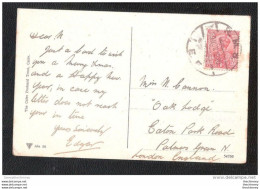 Dear M
Just a card to wish
you a merry Xmas,
and a Happy New
Year, in case my
letter does not reach
you in time
Yours sincerely
Edgar
Miss M. Cannon
"Oak Lodge"
Eaton Park Road
Palmers Green N.
London England